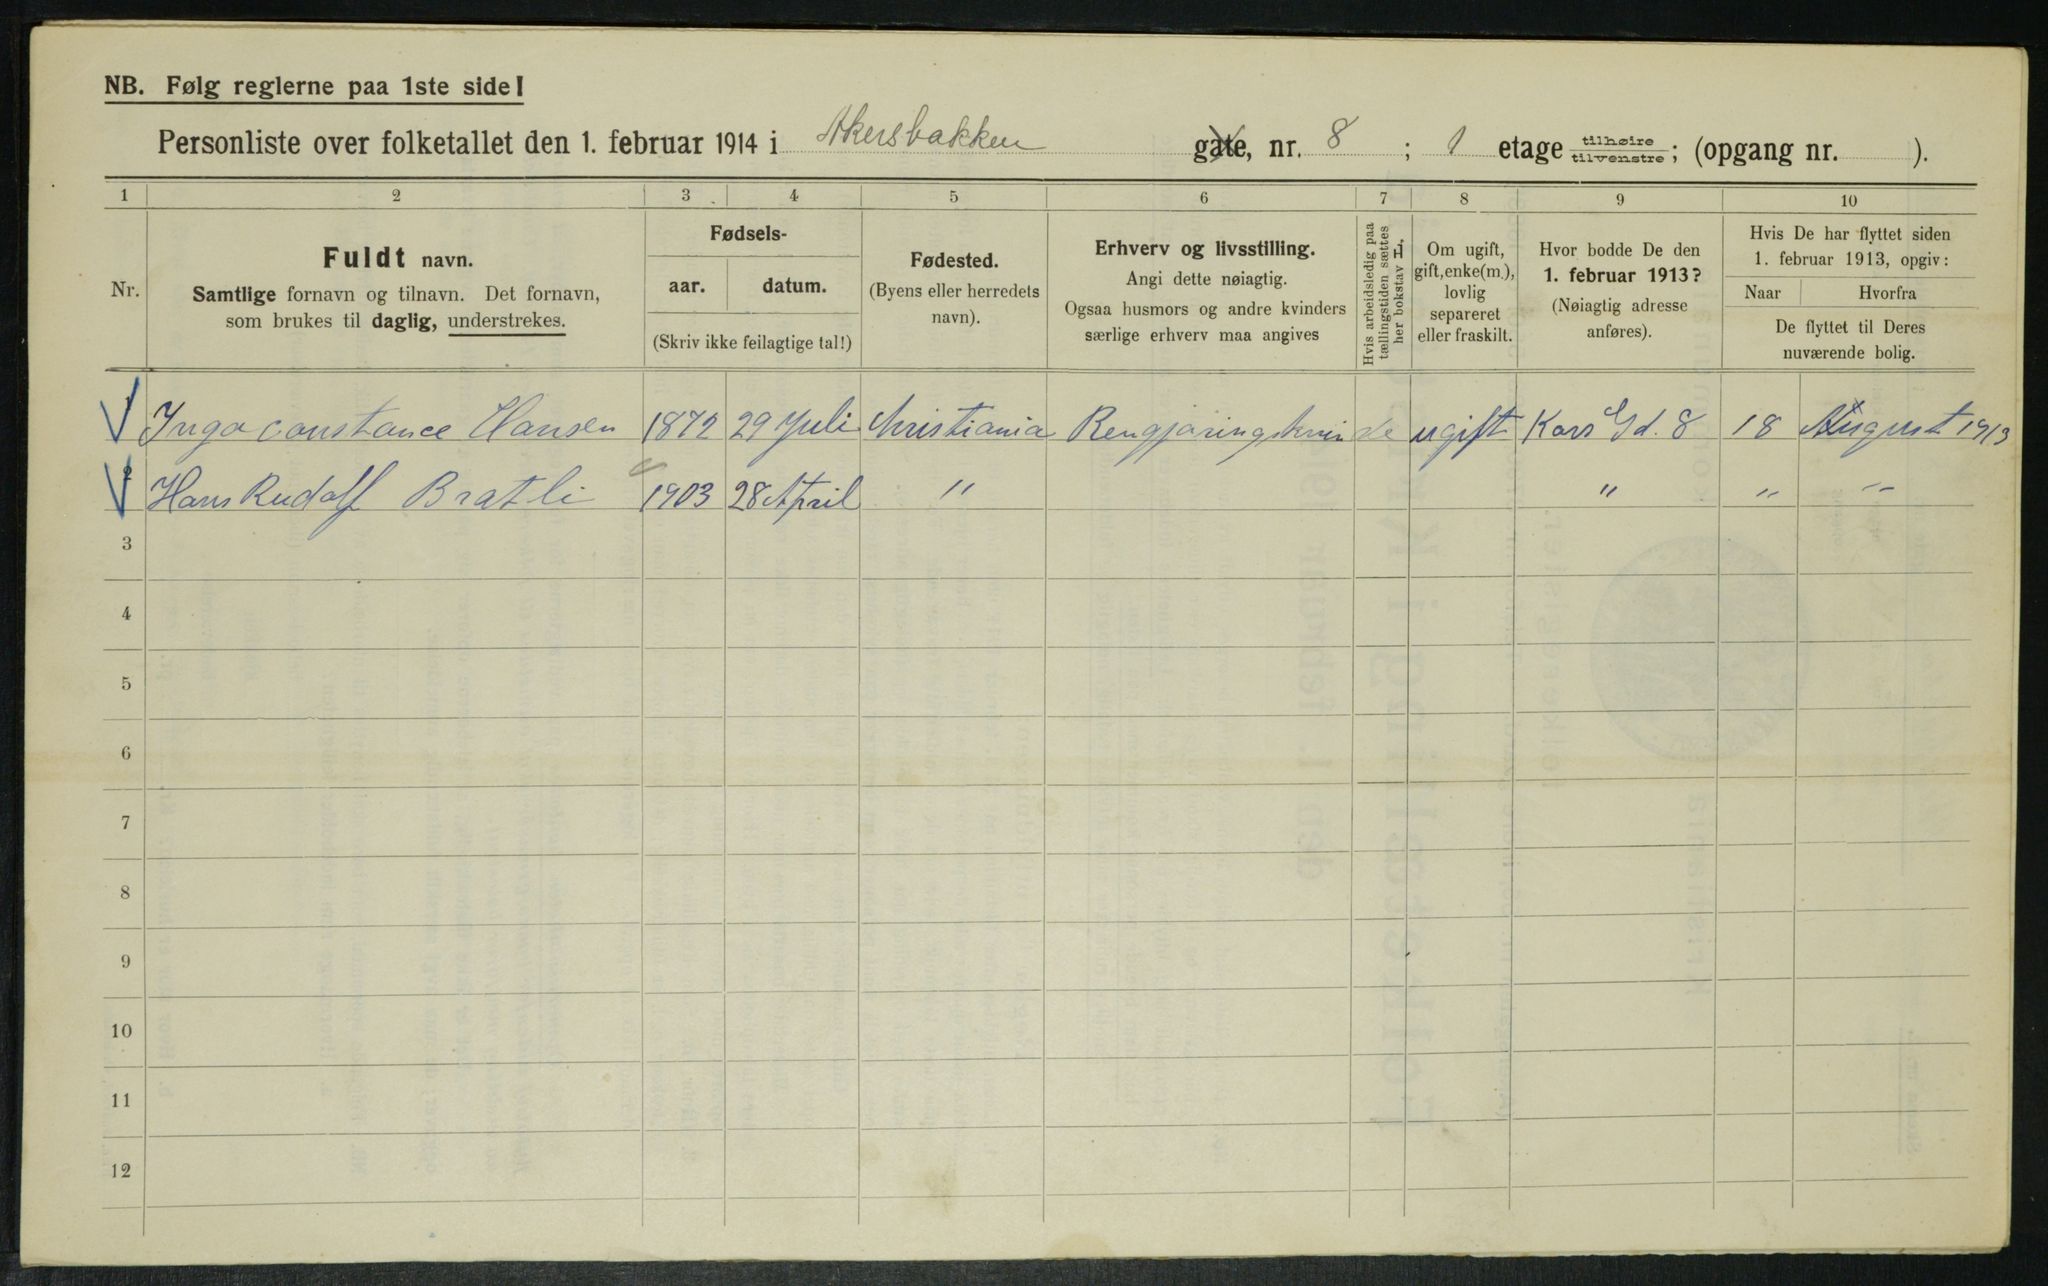 NB. Følg reglerne paa 1ste side!
Personliste over folketallet den 1. februar 1914 i Akersbakken gate, nr. 8 ; 1 etage tilhøire tilvenstre ; (opgang nr. ).
1 2 3 4 5 6 7 8 9 10
Nr.
Fuldt navn.
Samtlige fornavn og tilnavn. Det fornavn,
som brukes til daglig, understrekes.
Fødsels-
aar. datum.
(Skriv ikke feilagtige tal!)
Fødested.
(Byens eller herredets
navn).
Erhverv og livsstilling.
Angi dette nøiagtig.
Ogsaa husmors og andre kvinders
særlige erhverv maa angives
Hvis arbeidsledig paa
tællingstiden sættes
her bokstav L.
Om ugift,
gift, enke(m.),
lovlig
separeret
eller fraskilt.
Hvor bodde De den
1. februar 1913?
(Nøiagtig adresse
anføres).
Hvis De har flyttet siden
1. februar 1913, opgiv:
Naar Hvorfra
De flyttet til Deres
nuværende bolig.
1 Inga Constance Hansen 1872 29 Juli Christiania Rengjøringskvinde ugift Kors Gd. 8 18 August 1913
2 Hans Rudolf Bratli 1903 28 April " " " "
3
4
5
6
7
8
9
10
11
12